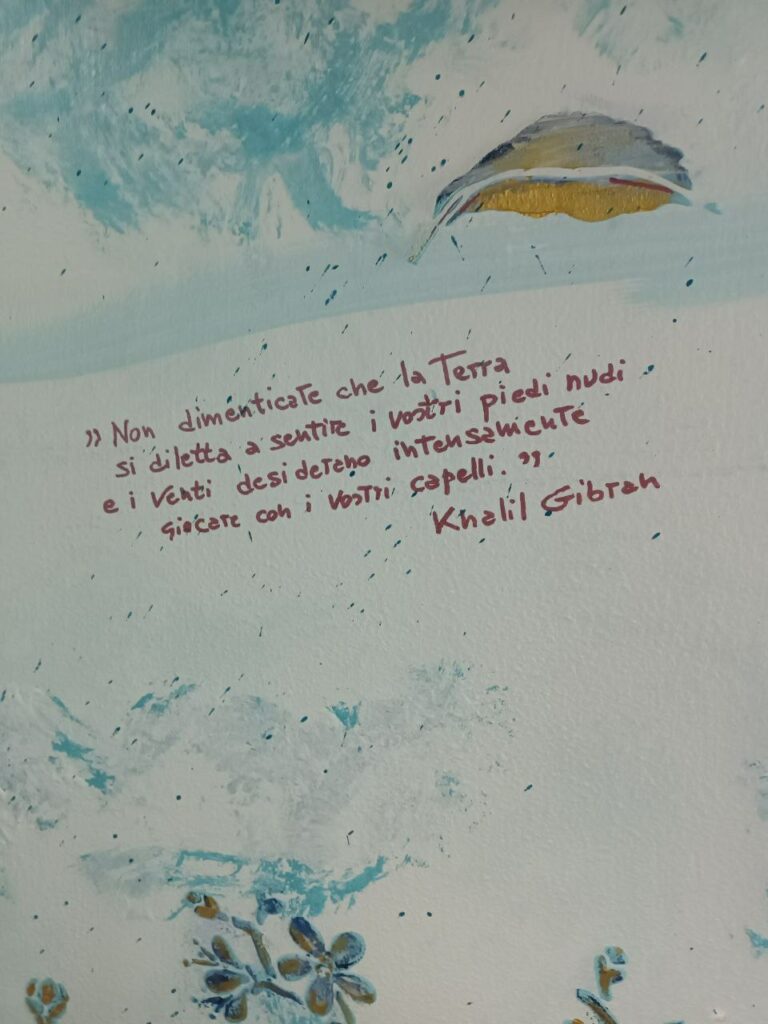 ” Non dimenticate che la Terra
si diletta a sentire i vostri piedi nudi
e i venti desiderano intensamente
giocare con i vostri capelli. ”
Khalil Gibran